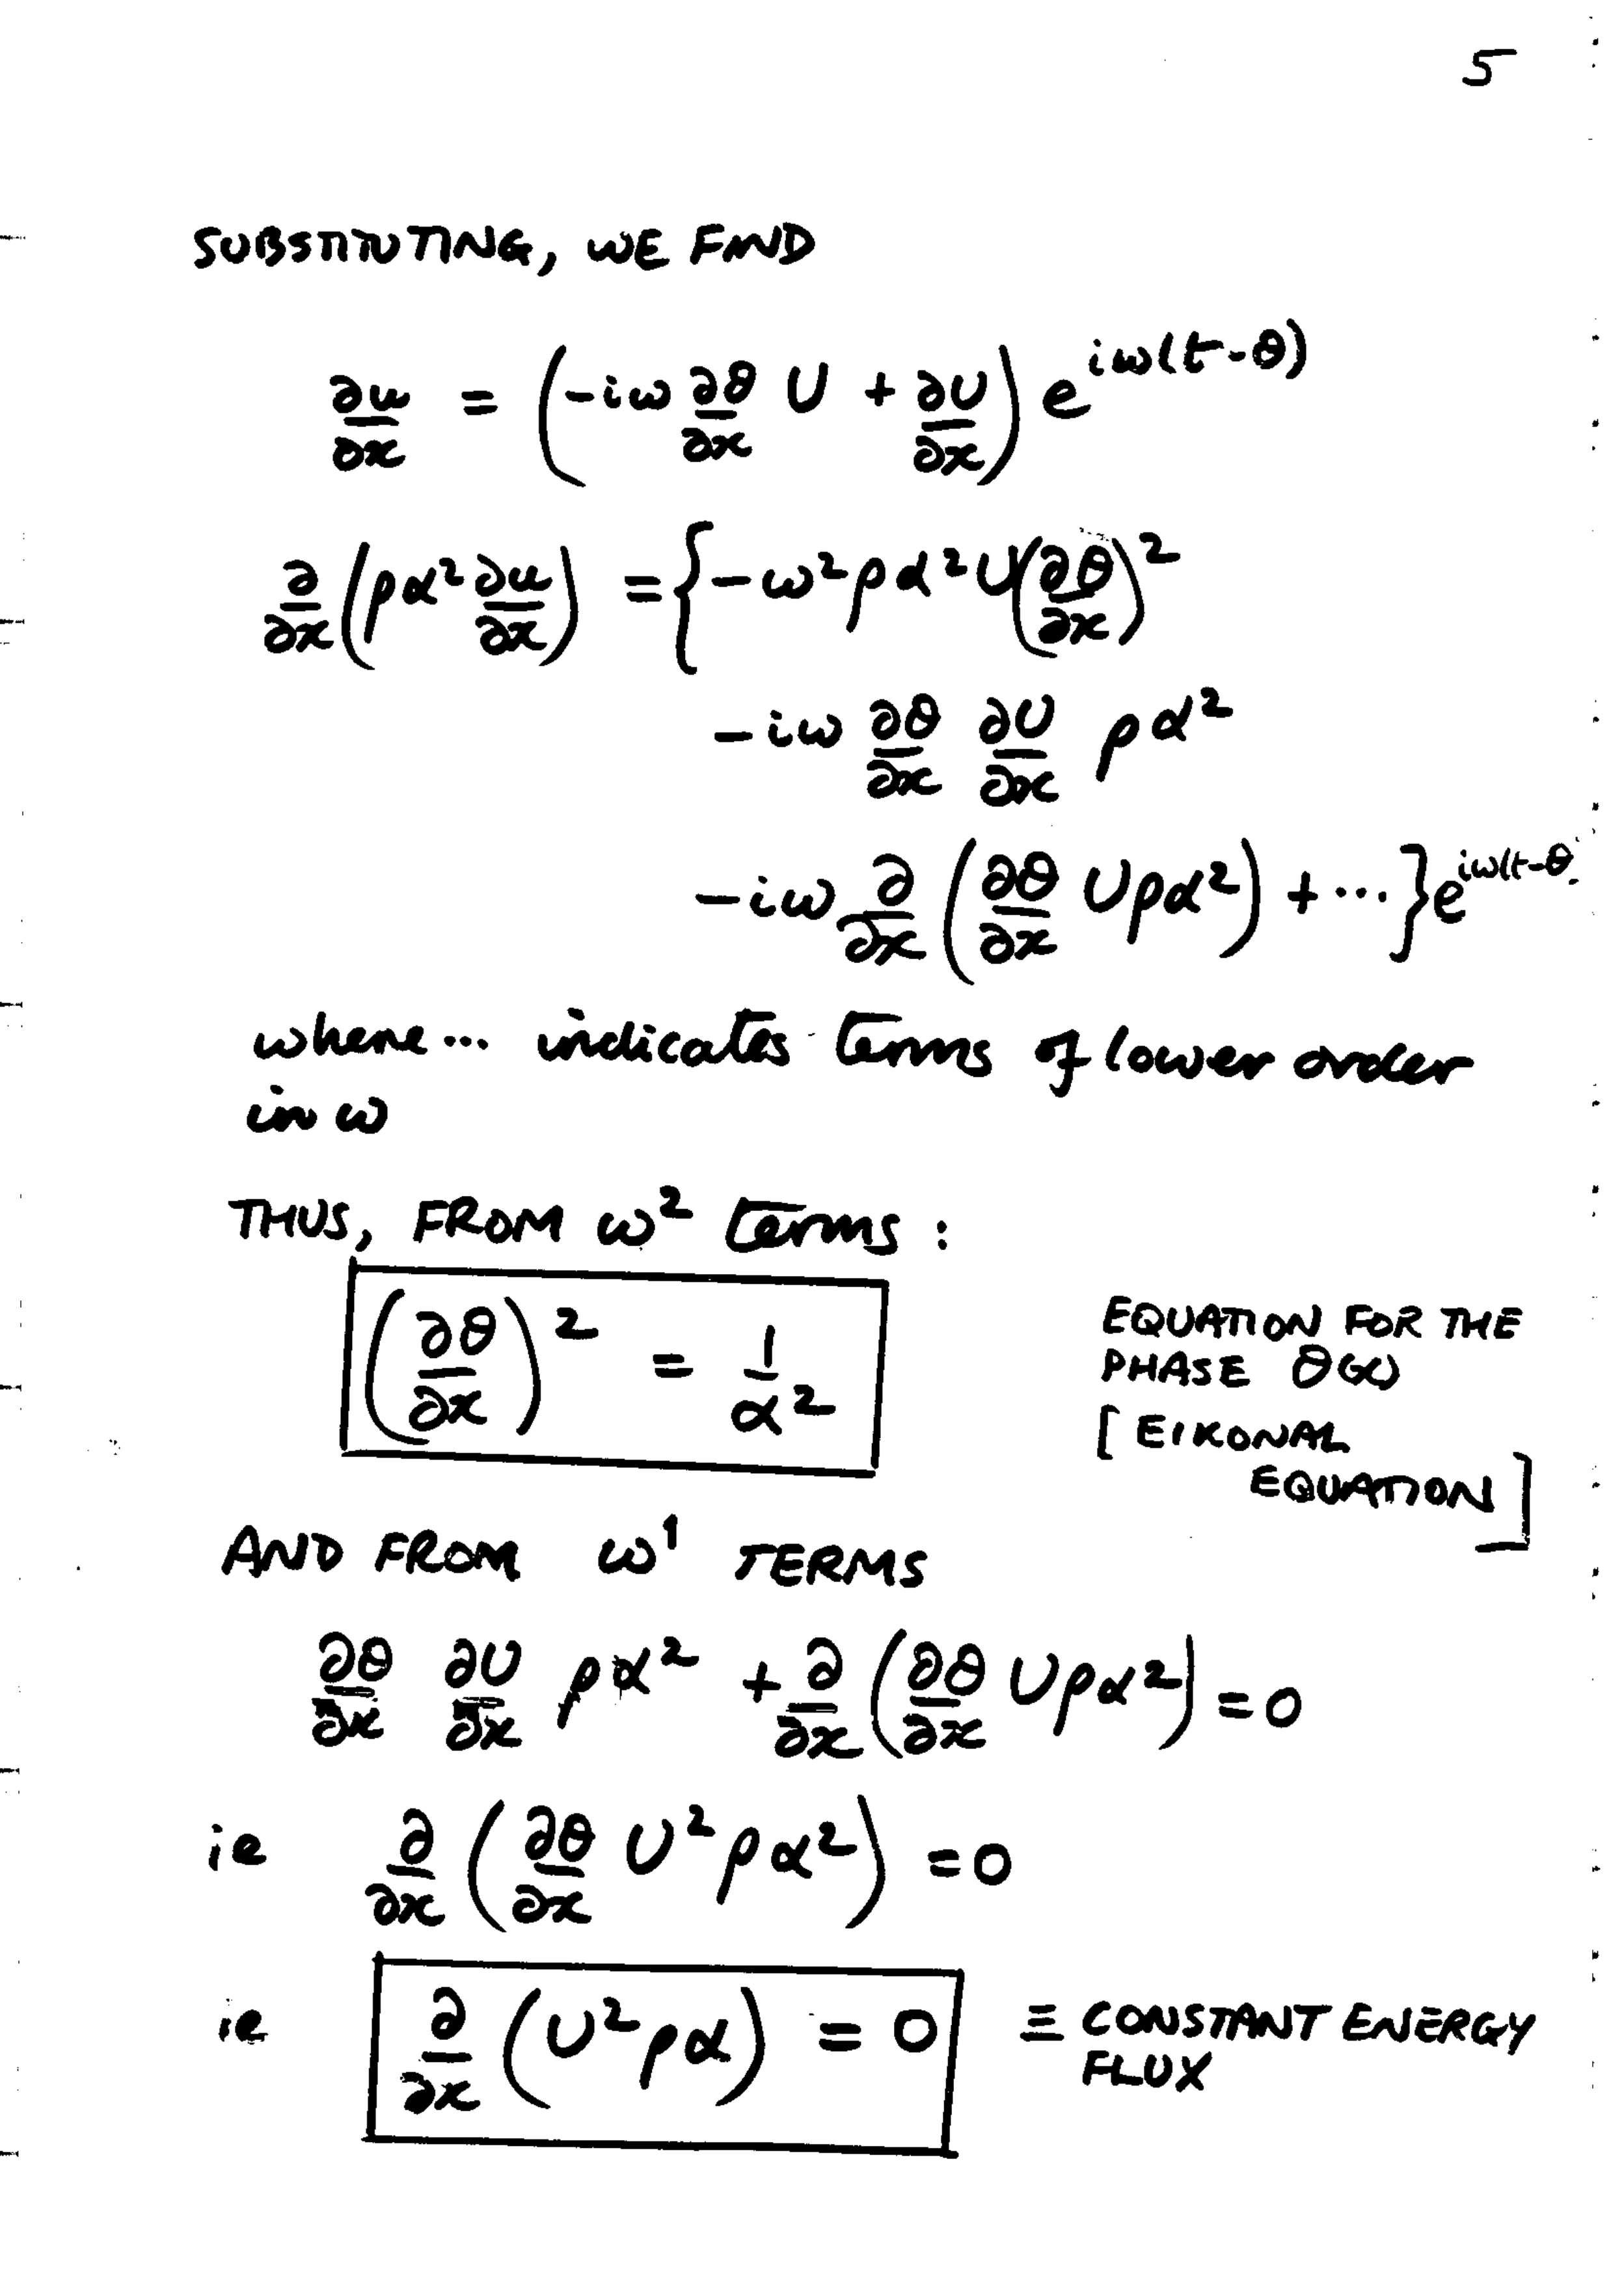 5
SUBSTITUTING, WE FIND
∂u/∂x = (-iω ∂θ/∂x U + ∂U/∂x) e^{iω(t-θ)}
∂/∂x (ρα² ∂u/∂x) = {-ω²ρα²U(∂θ/∂x)²
-iω ∂θ/∂x ∂U/∂x ρα²
-iω ∂/∂x (∂θ/∂x Uρα²) + ...} e^{iω(t-θ)}
where ... indicates terms of lower order
in ω
THUS, FROM ω² terms :
(∂θ/∂x)² = 1/α²
EQUATION FOR THE
PHASE θ(x)
[EIKONAL
EQUATION]
AND FROM ω¹ TERMS
∂θ/∂x ∂U/∂x ρα² + ∂/∂x (∂θ/∂x Uρα²) = 0
ie ∂/∂x (∂θ/∂x U²ρα²) = 0
ie ∂/∂x (U²ρα) = 0 ≡ CONSTANT ENERGY
FLUX